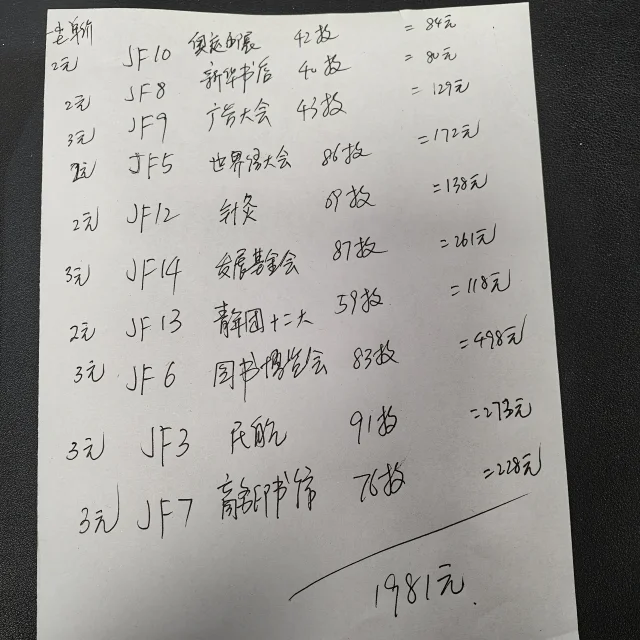 单价
2元 JF10 奥运邮展 42枚 =84元
2元 JF8 新华书店 40枚 =80元
3元 JF9 广告大会 43枚 =129元
2元 JF5 世界语大会 86枚 =172元
2元 JF12 针灸 69枚 =138元
3元 JF14 发展基金会 87枚 =261元
2元 JF13 青年团十二大 59枚 =118元
3元 JF6 图书博览会 83枚 =498元
3元 JF3 民航 91枚 =273元
3元 JF7 商务印书馆 76枚 =228元
1981元